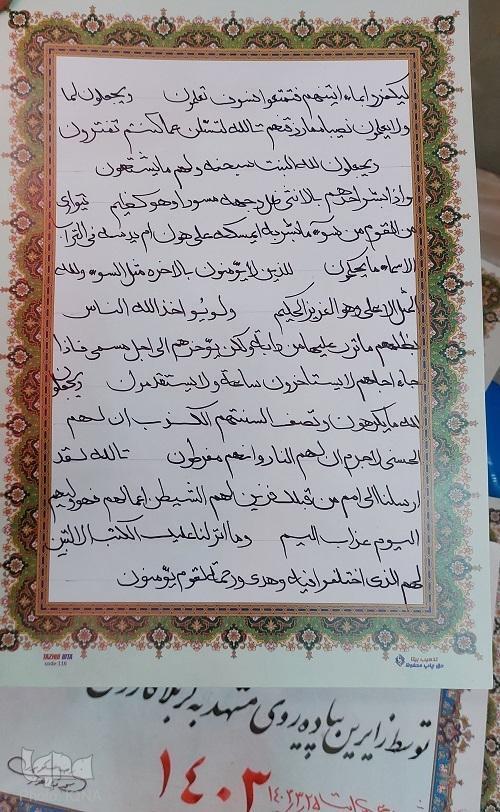 ليكفروا بماء اتينهم فتمتعوا فسوف تعلمون ويجعلون لما
لا يعلمون نصيبا مما رزقنهم تالله لتسئلن عما كنتم تفترون
ويجعلون لله البنت سبحنه ولهم ما يشتهون
واذا بشر احدهم بالانثى ظل وجهه مسودا وهو كظيم يتوارى
من القوم من سوء ما بشر به ايمسكه على هون ام يدسه فى التراب
الا ساء ما يحكمون للذين لا يؤمنون بالاخره مثل السوء ولله
المثل الاعلى وهو العزيز الحكيم ولو يؤاخذ الله الناس
بظلمهم ما ترك عليها من دابة ولكن يؤخرهم الى اجل مسمى فاذا
جاء اجلهم لا يستاخرون ساعة ولا يستقدمون ويجعلون
لله ما يكرهون وتصف السنتهم الكذب ان لهم
الحسنى لا جرم ان لهم النار وانهم مفرطون تالله لقد
ارسلنا الى امم من قبلك فزين لهم الشيطن اعمالهم فهو وليهم
اليوم عذاب اليم وما انزلنا عليك الكتب الا لتبين
لهم الذى اختلفوا فيه وهدى ورحمة لقوم يؤمنون
TAZHIB BITA
code:116
تذهیب بیتا
حق چاپ محفوظ
توسط زایرین پیاده روی مشهد به کربلا
۱۴۰۳